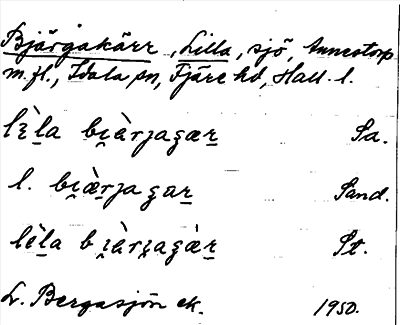 Bjärgakärr, Lilla, sjö, Annestorp
m.fl., Idala sn, Fjäre hd, Hall. l.
lɛ̀la bi̯àrjagær Sa.
l. bi̯æ̀rjagar Sand.
lèla bi̯àrjagær St.
L. Bergasjön ek. 1950.